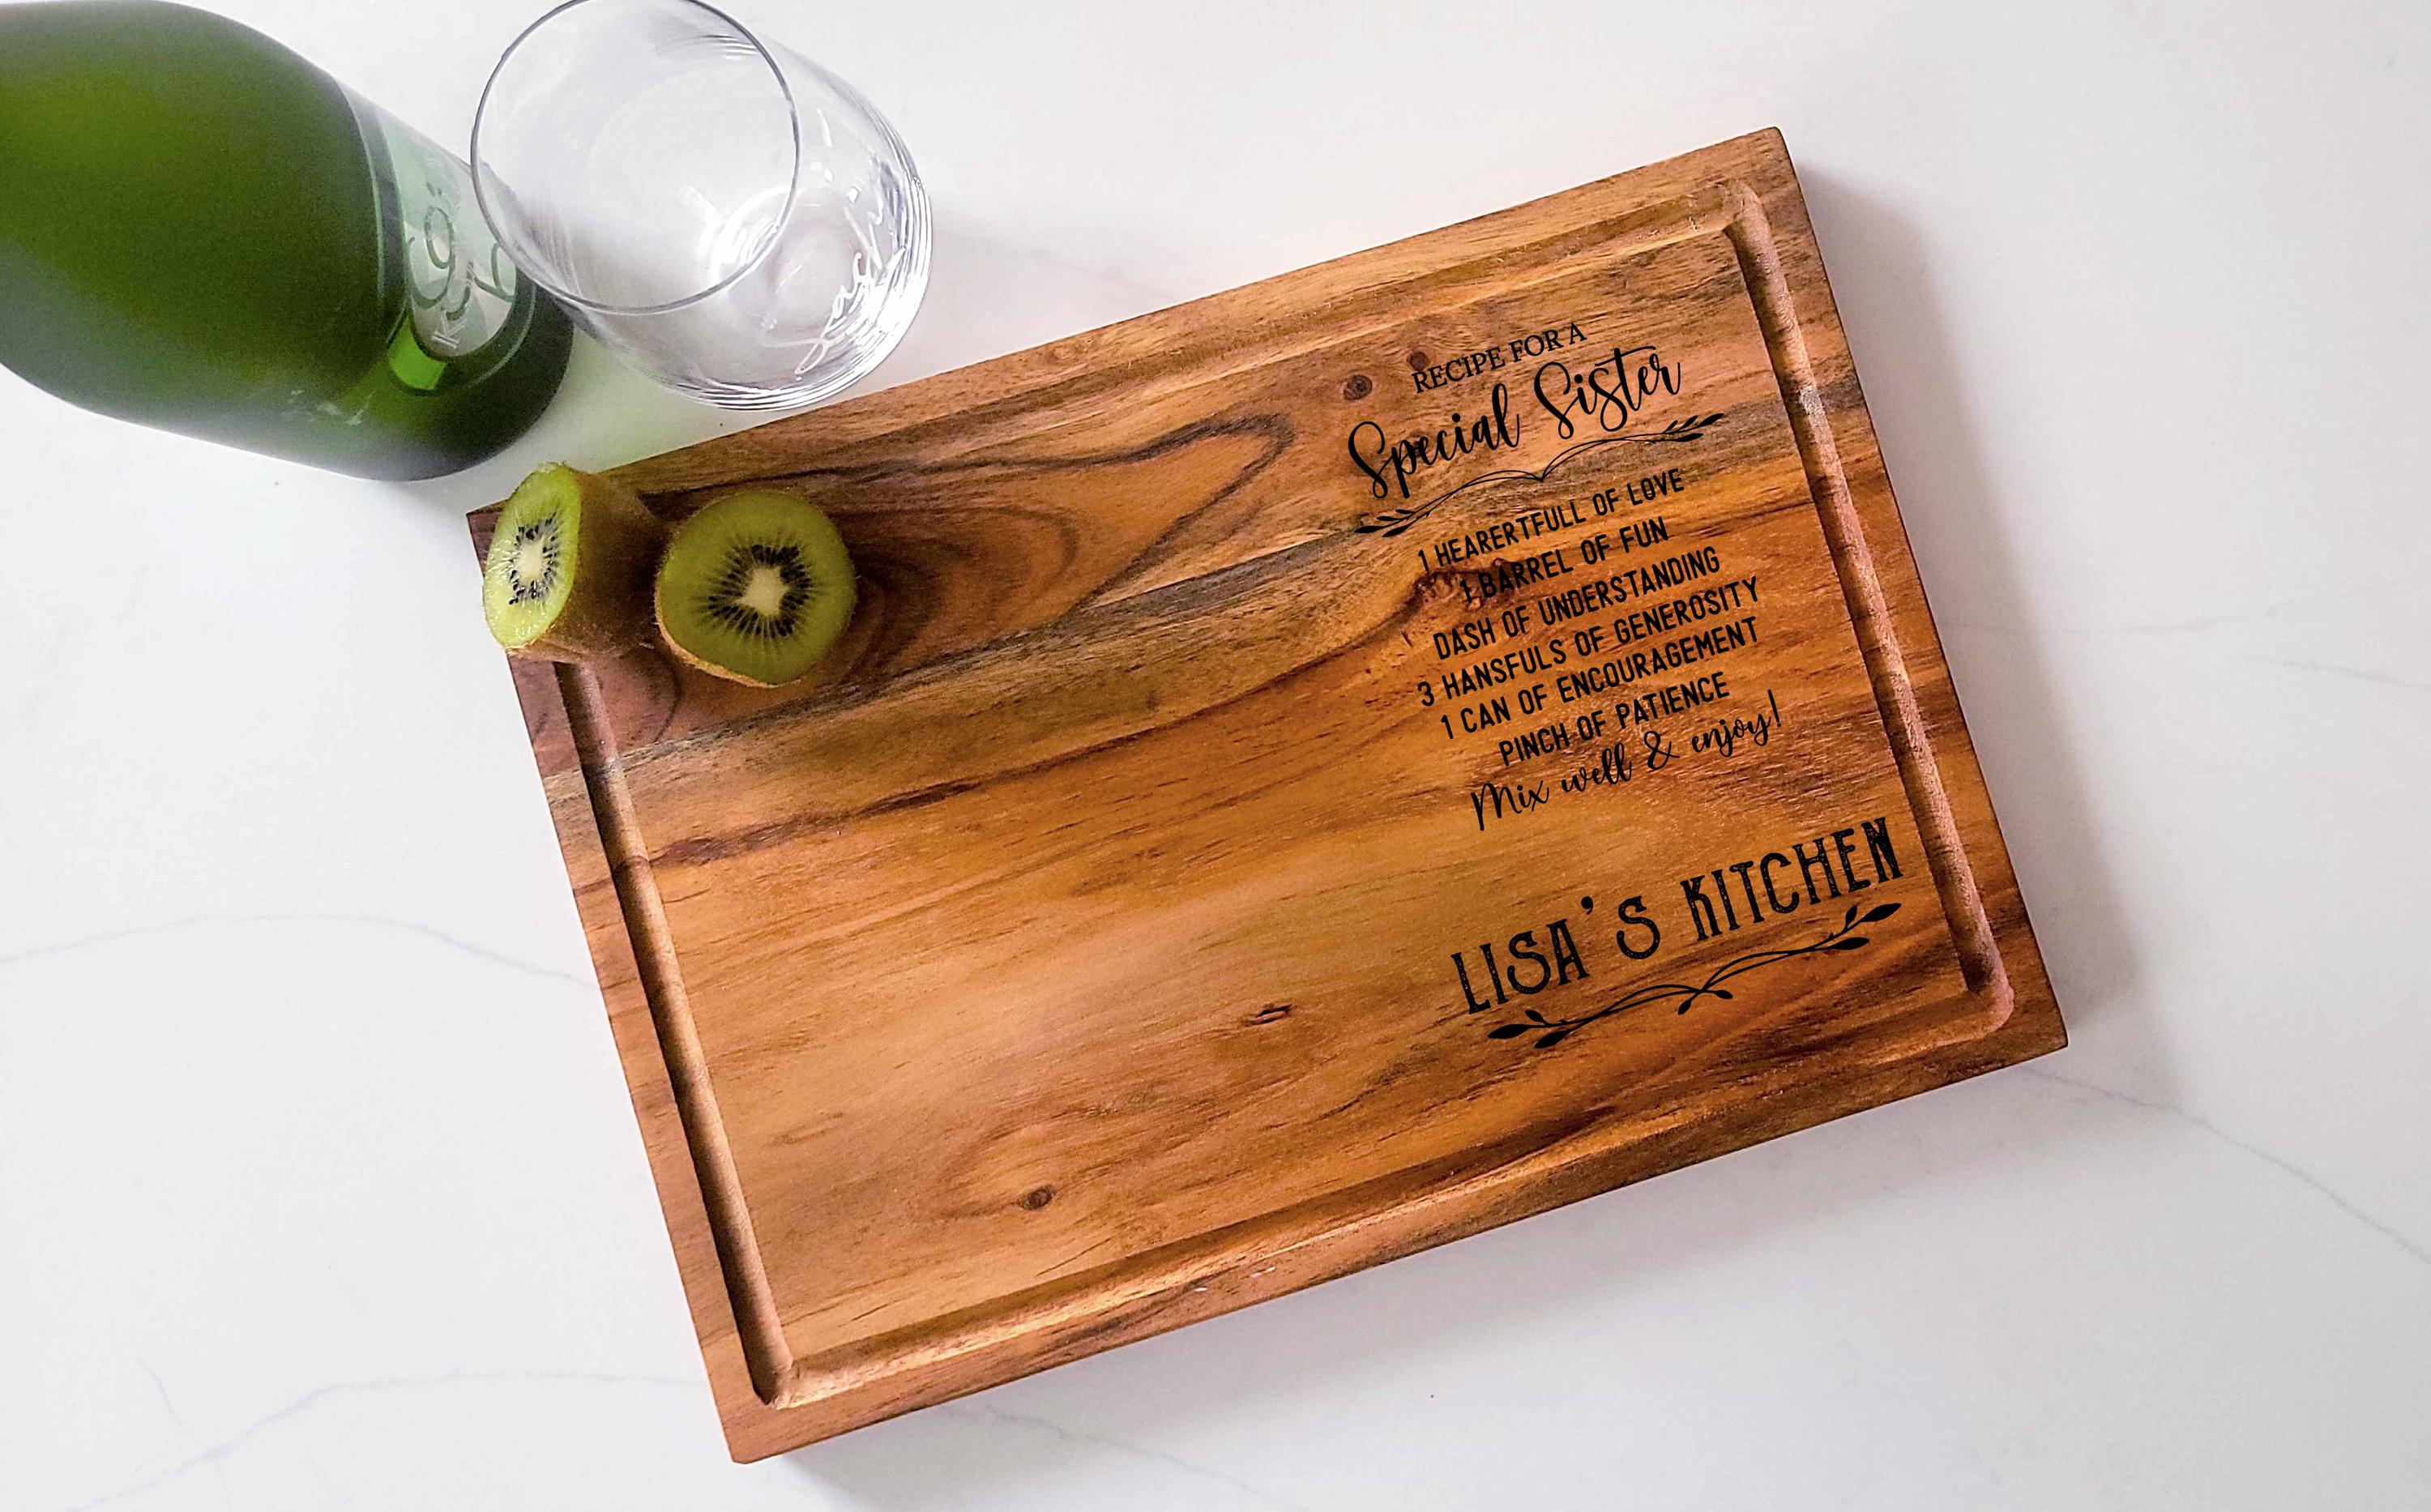 RECIPE FOR A
Special Sister
1 HEARERTFULL OF LOVE
1 BARREL OF FUN
DASH OF UNDERSTANDING
3 HANSFULS OF GENEROSITY
1 CAN OF ENCOURAGEMENT
PINCH OF PATIENCE
Mix well & enjoy!
LISA'S KITCHEN